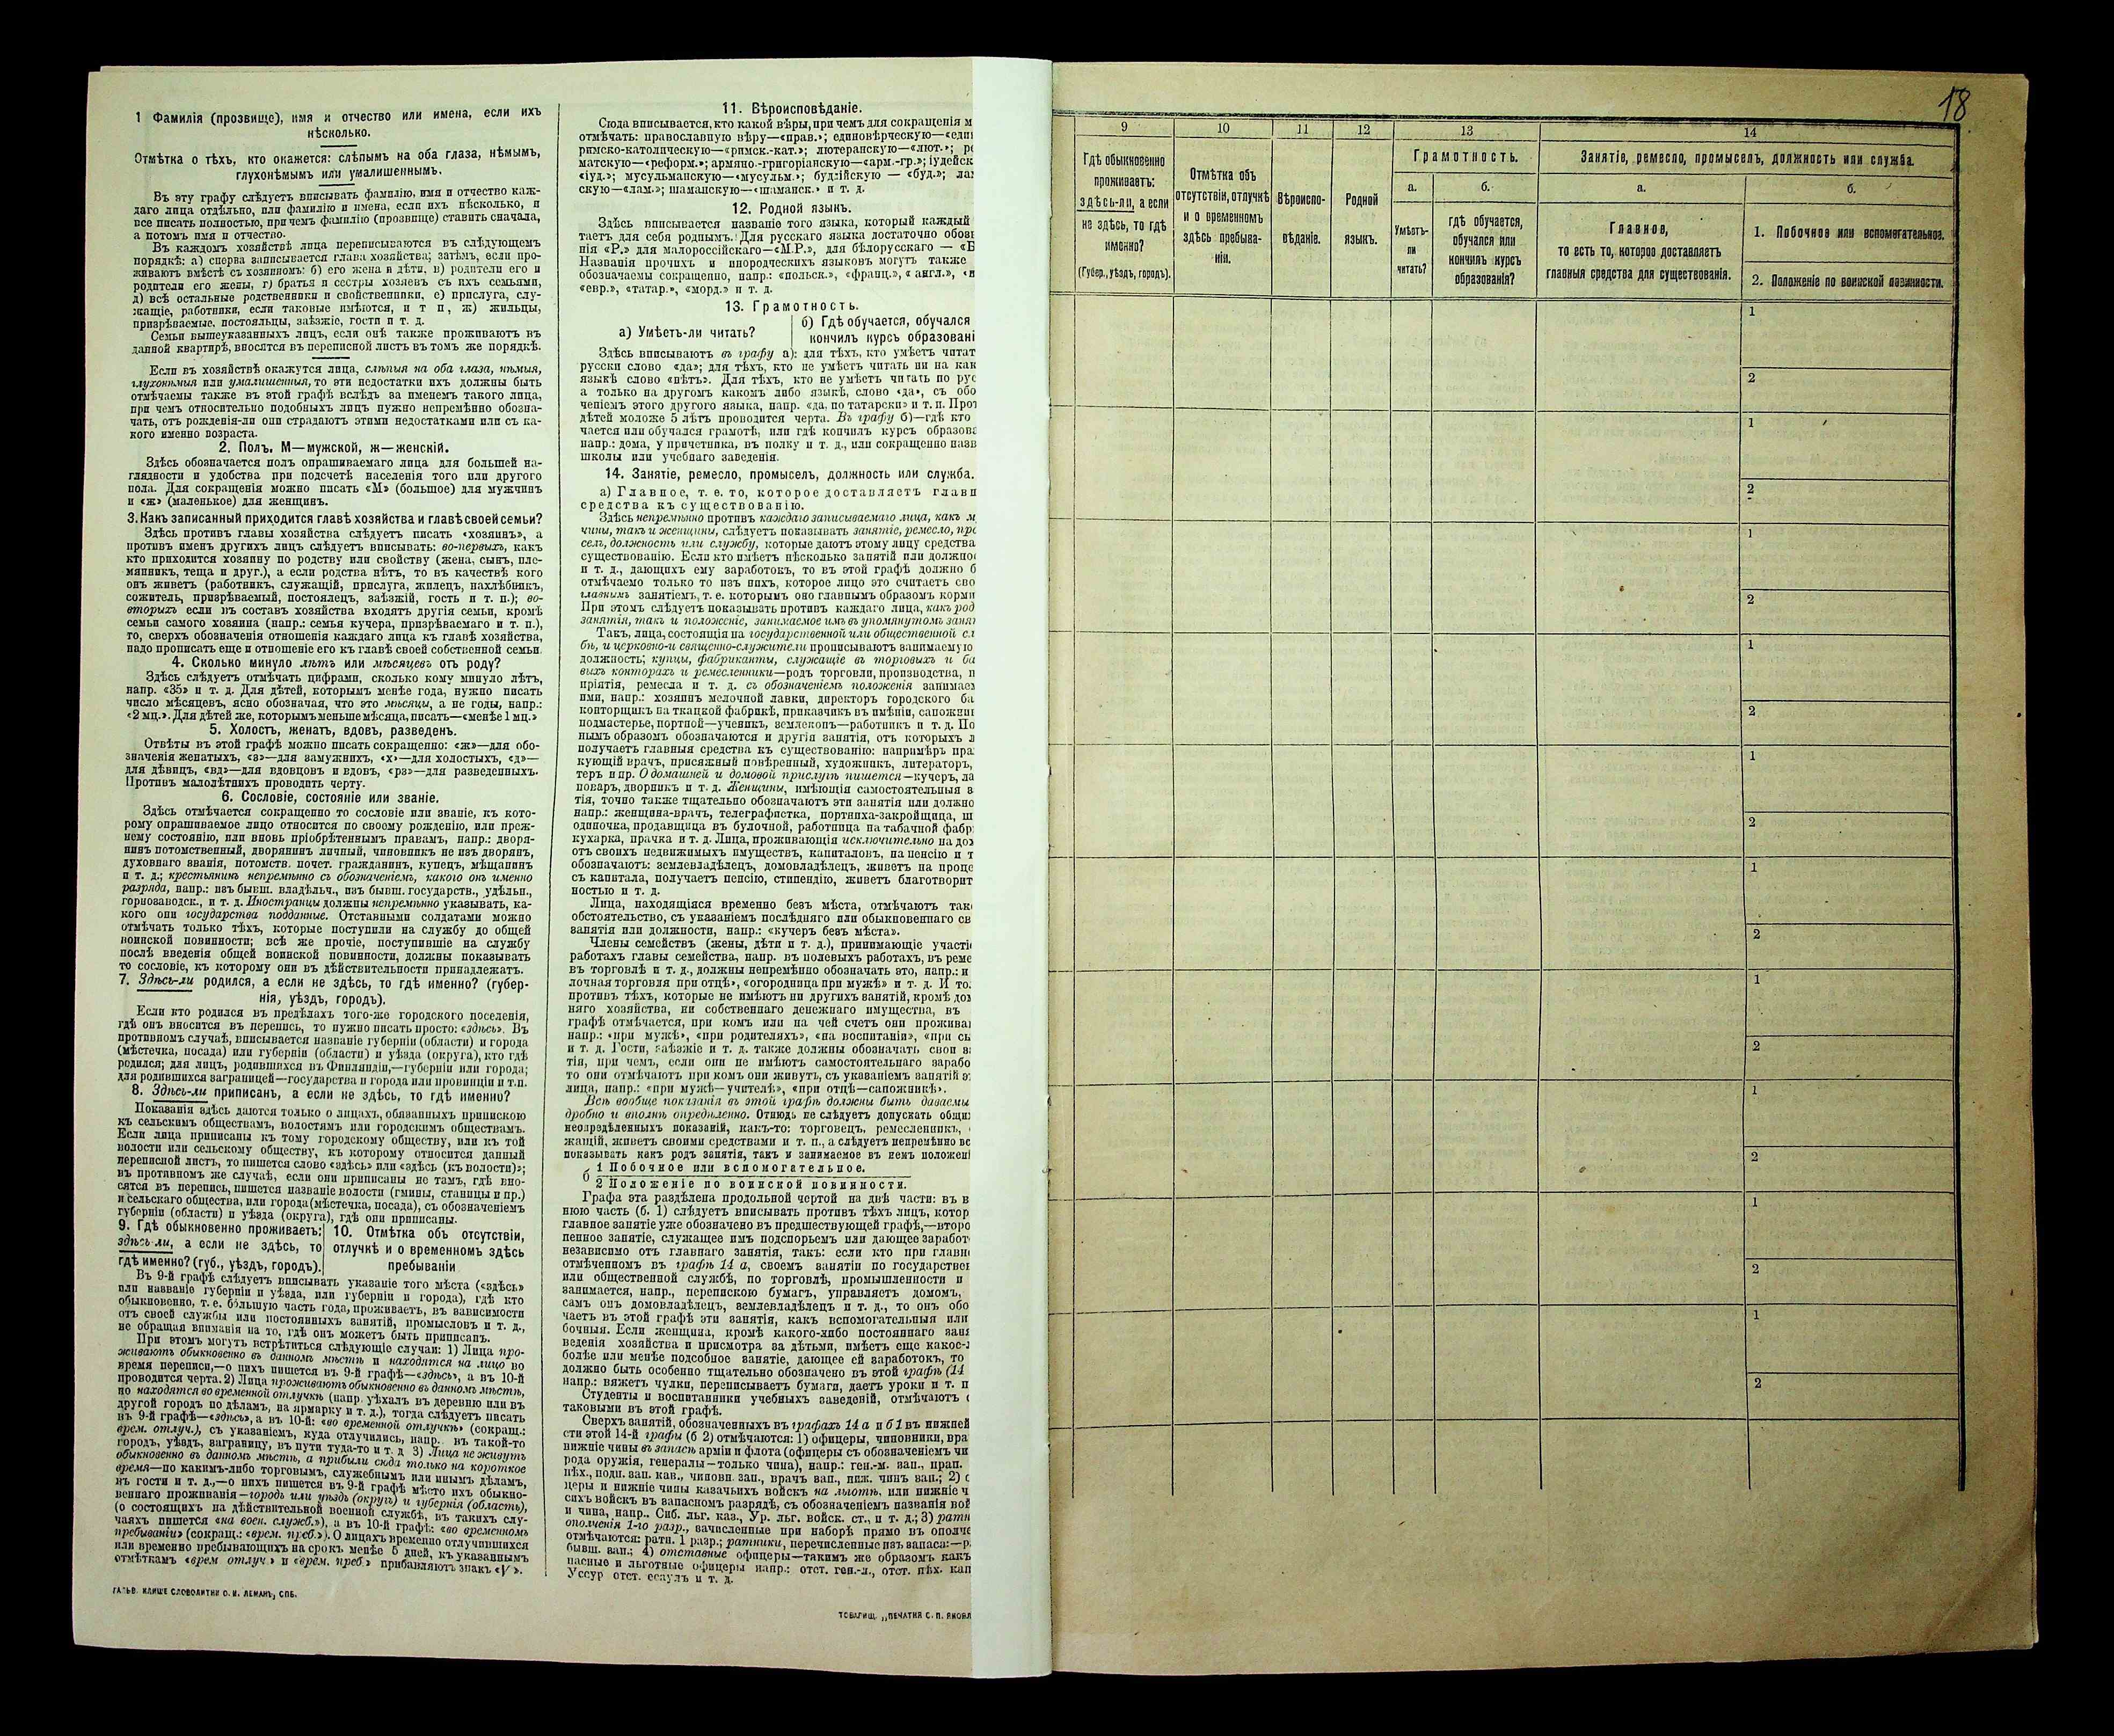 1 Фамилія (прозвище), имя и отчество или имена, если ихъ
нѣсколько.
Отмѣтка о тѣхъ, кто окажется: слѣпымъ на оба глаза, нѣмымъ,
глухонѣмымъ или умалишеннымъ.
Въ эту графу слѣдуетъ вписывать фамилію, имя и отчество каж-
даго лица отдѣльно, или фамилію и имена, если ихъ нѣсколько, и
все писать полностью, при чемъ фамилію (прозвище) ставить сначала,
а потомъ имя и отчество.
Въ каждомъ хозяйствѣ лица переписываются въ слѣдующемъ
порядкѣ: а) сперва записывается глава хозяйства; затѣмъ, если про-
живаютъ вмѣстѣ съ хозяиномъ: б) его жена и дѣти, в) родители его и
родители его жены, г) братья и сестры хозяевъ съ ихъ семьями,
д) всѣ остальные родственники и свойственники, е) прислуга, слу-
жащіе, работники, если таковые имѣются, и т п, ж) жильцы,
призрѣваемые, постояльцы, заѣзжіе, гости и т. д.
Семьи вышеуказанныхъ лицъ, если онѣ также проживаютъ въ
данной квартирѣ, вносятся въ переписной листъ въ томъ же порядкѣ.
Если въ хозяйствѣ окажутся лица, слѣпыя на оба глаза, нѣмыя,
глухонѣмыя или умалишенныя, то эти недостатки ихъ должны быть
отмѣчаемы также въ этой графѣ вслѣдъ за именемъ такого лица,
при чемъ относительно подобныхъ лицъ нужно непремѣнно обозна-
чать, отъ рожденія-ли они страдаютъ этими недостатками или съ ка-
кого именно возраста.
2. Полъ. М—мужской, ж—женскій.
Здѣсь обозначается полъ опрашиваемаго лица для большей на-
глядности и удобства при подсчетѣ населенія того или другого
пола. Для сокращенія можно писать «М» (большое) для мужчинъ
и «ж» (маленькое) для женщинъ.
3. Какъ записанный приходится главѣ хозяйства и главѣ своей семьи?
Здѣсь противъ главы хозяйства слѣдуетъ писать «хозяинъ», а
противъ именъ другихъ лицъ слѣдуетъ вписывать: во-первыхъ, какъ
кто приходится хозяину по родству или свойству (жена, сынъ, пле-
мянникъ, теща и друг.), а если родства нѣтъ, то въ качествѣ кого
онъ живетъ (работникъ, служащій, прислуга, жилецъ, нахлѣбникъ,
сожитель, призрѣваемый, постоялецъ, заѣзжій, гость и т. п.); во-
вторыхъ если въ составъ хозяйства входятъ другія семьи, кромѣ
семьи самого хозяина (напр.: семья кучера, призрѣваемаго и т. п.),
то, сверхъ обозначенія отношенія каждаго лица къ главѣ хозяйства,
надо прописать еще и отношеніе его къ главѣ своей собственной семьи.
4. Сколько минуло лѣтъ или мѣсяцевъ отъ роду?
Здѣсь слѣдуетъ отмѣчать цифрами, сколько кому минуло лѣтъ,
напр. «35» и т. д. Для дѣтей, которымъ менѣе года, нужно писать
число мѣсяцевъ, ясно обозначая, что это мѣсяцы, а не годы, напр.:
«2 мц.». Для дѣтей же, которымъ меньше мѣсяца, писать—«менѣе 1 мц.»
5. Холостъ, женатъ, вдовъ, разведенъ.
Отвѣты въ этой графѣ можно писать сокращенно: «ж»—для обо-
значенія женатыхъ, «з»—для замужнихъ, «х»—для холостыхъ, «д»—
для дѣвицъ, «вд»—для вдовцовъ и вдовъ, «рз»—для разведенныхъ.
Противъ малолѣтнихъ проводить черту.
6. Сословіе, состояніе или званіе.
Здѣсь отмѣчается сокращенно то сословіе или званіе, къ кото-
рому опрашиваемое лицо относится по своему рожденію, или преж-
нему состоянію, или вновь пріобрѣтеннымъ правамъ, напр.: дворя-
нинъ потомственный, дворянинъ личный, чиновникъ не изъ дворянъ,
духовнаго званія, потомств. почет. гражданинъ, купецъ, мѣщанинъ
и т. д.; крестьянинъ непремѣнно съ обозначеніемъ, какого онъ именно
разряда, напр.: изъ бывш. владѣльч., изъ бывш. государств., удѣльн.,
горнозаводск., и т. д. Иностранцы должны непремѣнно указывать, ка-
кого они государства подданные. Отставными солдатами можно
отмѣчать только тѣхъ, которые поступили на службу до общей
воинской повинности; всѣ же прочіе, поступившіе на службу
послѣ введенія общей воинской повинности, должны показывать
то сословіе, къ которому они въ дѣйствительности принадлежатъ.
7. Здѣсь-ли родился, а если не здѣсь, то гдѣ именно? (губер-
нія, уѣздъ, городъ).
Если кто родился въ предѣлахъ того-же городского поселенія,
гдѣ онъ вносится въ перепись, то нужно писать просто: «здѣсь». Въ
противномъ случаѣ, вписывается названіе губерніи (области) и города
(мѣстечка, посада) или губерніи (области) и уѣзда (округа), кто гдѣ
родился; для лицъ, родившихся въ Финляндіи,—губерніи или города;
для родившихся заграницей—государства и города или провинціи и т.п.
8. Здѣсь-ли приписанъ, а если не здѣсь, то гдѣ именно?
Показанія здѣсь даются только о лицахъ, обязанныхъ припискою
къ сельскимъ обществамъ, волостямъ или городскимъ обществамъ.
Если лица приписаны къ тому городскому обществу, или къ той
волости или сельскому обществу, къ которому относится данный
переписной листъ, то пишется слово «здѣсь» или «здѣсь (къ волости)»;
въ противномъ же случаѣ, если они приписаны не тамъ, гдѣ вно-
сятся въ перепись, пишется названіе волости (гмины, станицы и пр.)
и сельскаго общества, или города (мѣстечка, посада), съ обозначеніемъ
губерніи (области) и уѣзда (округа), гдѣ они приписаны.
9. Гдѣ обыкновенно проживаетъ:
здѣсь-ли, а если не здѣсь, то
гдѣ именно? (губ., уѣздъ, городъ).
10. Отмѣтка объ отсутствіи,
отлучкѣ и о временномъ здѣсь
пребываніи
Въ 9-й графѣ слѣдуетъ вписывать указаніе того мѣста («здѣсь»
или названіе губерніи и уѣзда, или губерніи и города), гдѣ кто
обыкновенно, т. е. большую часть года, проживаетъ, въ зависимости
отъ своей службы или постоянныхъ занятій, промысловъ и т. д.,
не обращая вниманія на то, гдѣ онъ можетъ быть приписанъ.
При этомъ могутъ встрѣтиться слѣдующіе случаи: 1) Лица про-
живаютъ обыкновенно въ данномъ мѣстѣ и находятся на лицо во
время переписи,—о нихъ пишется въ 9-й графѣ—«здѣсь», а въ 10-й
проводится черта. 2) Лица проживаютъ обыкновенно въ данномъ мѣстѣ,
но находятся во временной отлучкѣ (напр. уѣхалъ въ деревню или въ
другой городъ по дѣламъ, на ярмарку и т. д.), тогда слѣдуетъ писать
въ 9-й графѣ—«здѣсь», а въ 10-й: «во временной отлучкѣ» (сокращ.:
врем. отлуч.), съ указаніемъ, куда отлучились, напр. въ такой-то
городъ, уѣздъ, заграницу, въ пути туда-то и т. д 3) Лица не живутъ
обыкновенно въ данномъ мѣстѣ, а прибыли сюда только на короткое
время—по какимъ-либо торговымъ, служебнымъ или инымъ дѣламъ,
въ гости и т. д.,—о нихъ пишется въ 9-й графѣ мѣсто ихъ обыкно-
веннаго проживанія—городъ или уѣздъ (округъ) и губернія (область),
(о состоящихъ на дѣйствительной военной службѣ, въ такихъ слу-
чаяхъ пишется «на воен. служб.»), а въ 10-й графѣ: «во временномъ
пребываніи» (сокращ.: «врем. преб.»). О лицахъ временно отлучившихся
или временно пребывающихъ на срокъ менѣе 5 дней, къ указаннымъ
отмѣткамъ «врем отлуч.» и «врем. преб.» прибавляютъ знакъ «V».
ГАЛЬВ. КЛИШЕ СЛОВОЛИТНИ О. И. ЛЕМАНЪ, СПБ.
11. Вѣроисповѣданіе.
Сюда вписывается, кто какой вѣры, при чемъ для сокращенія м
отмѣчать: православную вѣру—«прав.»; единовѣрческую—«еди
римско-католическую—«римск.-кат.»; лютеранскую—«лют.»; р
матскую—«реформ.»; армяно.-григоріанскую—«арм.-гр.»; іудейск
«іуд.»; мусульманскую—«мусульм.»; буддійскую — «буд.»; ла
скую—«лам.»; шаманскую—«шаманск.» и т. д.
12. Родной языкъ.
Здѣсь вписывается названіе того языка, который каждый
таетъ для себя роднымъ. Для русскаго языка достаточно обоз
нія «Р.» для малороссійскаго—«М.Р.», для бѣлорусскаго — «Б
Названія прочихъ и инородческихъ языковъ могутъ также
обозначаемы сокращенно, напр.: «польск.», «франц.», « англ.», «н
«евр.», «татар.», «морд.» и т. д.
13. Грамотность.
а) Умѣетъ-ли читать?
б) Гдѣ обучается, обучался
кончилъ курсъ образовані
Здѣсь вписываютъ въ графу а): для тѣхъ, кто умѣетъ читат
русски слово «да»; для тѣхъ, кто не умѣетъ читать ни на как
языкѣ слово «нѣтъ». Для тѣхъ, кто не умѣетъ читать по рус
а только на другомъ какомъ либо языкѣ, слово «да», съ обо
ченіемъ этого другого языка, напр. «да, по татарски» и т. п. Прот
дѣтей моложе 5 лѣтъ проводится черта. Въ графу б)—гдѣ кто
чается или обучался грамотѣ, или гдѣ кончилъ курсъ образова
напр.: дома, у причетника, въ полку и т. д., или сокращенно назв
школы или учебнаго заведенія.
14. Занятіе, ремесло, промыселъ, должность или служба.
а) Главное, т. е. то, которое доставляетъ главн
средства къ существованію.
Здѣсь непремѣнно противъ каждаго записываемаго лица, какъ м
чины, такъ и женщины, слѣдуетъ показывать занятіе, ремесло, про
селъ, должность или службу, которые даютъ этому лицу средства
существованію. Если кто имѣетъ нѣсколько занятій или должно
и т. д., дающихъ ему заработокъ, то въ этой графѣ должно б
отмѣчаемо только то изъ нихъ, которое лицо это считаетъ сво
главнымъ занятіемъ, т. е. которымъ оно главнымъ образомъ корми
При этомъ слѣдуетъ показывать противъ каждаго лица, какъ род
занятія, такъ и положеніе, занимаемое имъ въ упомянутомъ занят
Такъ, лица, состоящія на государственной или общественной сл
бѣ, и церковно-и священно-служители прописываютъ занимаемую
должность; купцы, фабриканты, служащіе въ торговыхъ и ба
выхъ конторахъ и ремесленники—родъ торговли, производства, п
пріятія, ремесла и т. д. съ обозначеніемъ положенія занимаем
ими, напр.: хозяинъ мелочной лавки, директоръ городского ба
конторщикъ на ткацкой фабрикѣ, приказчикъ въ имѣніи, сапожни
подмастерье, портной—ученикъ, землекопъ—работникъ и т. д. По
нымъ образомъ обозначаются и другія занятія, отъ которыхъ л
получаетъ главныя средства къ существованію: напримѣръ пра
кующій врачъ, присяжный повѣренный, художникъ, литераторъ,
теръ и пр. О домашней и домовой прислугѣ пишется—кучеръ, ла
поваръ, дворникъ и т. д. Женщины, имѣющія самостоятельныя з
тія, точно также тщательно обозначаютъ эти занятія или должно
напр.: женщина-врачъ, телеграфистка, портниха-закройщица, ш
одиночка, продавщица въ булочной, работница на табачной фабр
кухарка, прачка и т. д. Лица, проживающія исключительно на до
отъ своихъ недвижимыхъ имуществъ, капиталовъ, на пенсію и т
обозначаютъ: землевладѣлецъ, домовладѣлецъ, живетъ на проце
съ капитала, получаетъ пенсію, стипендію, живетъ благотворит
ностью и т. д.
Лица, находящіяся временно безъ мѣста, отмѣчаютъ так
обстоятельство, съ указаніемъ послѣдняго или обыкновеннаго св
занятія или должности, напр.: «кучеръ безъ мѣста».
Члены семействъ (жены, дѣти и т. д.), принимающіе участі
работахъ главы семейства, напр. въ полевыхъ работахъ, въ реме
въ торговлѣ и т. д., должны непремѣнно обозначать это, напр.: и
лочная торговля при отцѣ», «огородница при мужѣ» и т. д. И то
противъ тѣхъ, которые не имѣютъ ни другихъ занятій, кромѣ до
няго хозяйства, ни собственнаго денежнаго имущества, въ
графѣ отмѣчается, при комъ или на чей счетъ они прожива
напр.: «при мужѣ», «при родителяхъ», «на воспитаніи», «при сы
и т. д. Гости, заѣзжіе и т. д. также должны обозначать свои з
тія, при чемъ, если они не имѣютъ самостоятельнаго зарабо
то они отмѣчаютъ при комъ они живутъ, съ указаніемъ занятій э
лица, напр.: «при мужѣ—учителѣ», «при отцѣ—сапожникѣ».
Всѣ вообще показанія въ этой графѣ должны быть даваемы
дробно и вполнѣ опредѣленно. Отнюдь не слѣдуетъ допускать общи
неопредѣленныхъ показаній, какъ-то: торговецъ, ремесленникъ,
жащій, живетъ своими средствами и т. п., а слѣдуетъ непремѣнно вс
показывать какъ родъ занятія, такъ и занимаемое въ немъ положен
б
1 Побочное или вспомогательное.
2 Положеніе по воинской повинности.
Графа эта раздѣлена продольной чертой на двѣ части: въ в
нюю часть (б. 1) слѣдуетъ вписывать противъ тѣхъ лицъ, котор
главное занятіе уже обозначено въ предшествующей графѣ,—второ
пенное занятіе, служащее имъ подспорьемъ или дающее заработ
независимо отъ главнаго занятія, такъ: если кто при главн
отмѣченномъ въ графѣ 14 а, своемъ занятіи по государствен
или общественной службѣ, по торговлѣ, промышленности и
занимается, напр., перепискою бумагъ, управляетъ домомъ,
самъ онъ домовладѣлецъ, землевладѣлецъ и т. д., то онъ обо
чаетъ въ этой графѣ эти занятія, какъ вспомогательныя или
бочныя. Если женщина, кромѣ какого-либо постояннаго заня
веденія хозяйства и присмотра за дѣтьми, имѣетъ еще какое-л
болѣе или менѣе подсобное занятіе, дающее ей заработокъ, то
должно быть особенно тщательно обозначено въ этой графѣ (14
напр.: вяжетъ чулки, переписываетъ бумаги, даетъ уроки и т. п
Студенты и воспитанники учебныхъ заведеній, отмѣчаютъ с
таковыми въ этой графѣ.
Сверхъ занятій, обозначенныхъ въ графахъ 14 а и б 1 въ нижней
сти этой 14-й графы (б 2) отмѣчаются: 1) офицеры, чиновники, вра
нижніе чины въ запасѣ арміи и флота (офицеры съ обозначеніемъ чи
рода оружія, генералы—только чина), напр.: ген.-м. зап., прап.
пѣх., подп. зап. кав., чиновн. зап., врачъ зап., ниж. чинъ зап.; 2) о
церы и нижніе чины казачьихъ войскъ на льготѣ, или нижніе ч
сихъ войскъ въ запасномъ разрядѣ, съ обозначеніемъ названія вой
и чина, напр.. Сиб. льг. каз., Ур. льг. войск. ст., и т. д.; 3) ратн
ополченія 1-го разр., зачисленные при наборѣ прямо въ ополче
отмѣчаются: ратн. 1 разр.; ратники, перечисленные изъ запаса:—р
бывш. зап.; 4) отставные офицеры—такимъ же образомъ какъ
пасные и льготные офицеры напр.: отст. ген.-л., отст. пѣх. кап
Уссур отст. есаулъ и т. д.
ТОВАРИЩ. „ПЕЧАТНЯ С. П. ЯКОВЛ
18
9
10
11
12
13
14
Гдѣ обыкновенно
проживаетъ:
здѣсь-ли, а если
не здѣсь, то гдѣ
именно?
(Губер., уѣздъ, городъ).
Отмѣтка объ
отсутствіи, отлучкѣ
и о временномъ
здѣсь пребыва-
ніи.
Вѣроиспо-
вѣданіе.
Родной
языкъ.
Грамотность.
а.
Умѣетъ-
ли
читать?
б.
гдѣ обучается,
обучался или
кончилъ курсъ
образованія?
Занятіе, ремесло, промыселъ, должность или служба.
а.
Главное,
то есть то, которое доставляетъ
главныя средства для существованія.
б.
1. Побочное или вспомогательное.
2. Положеніе по воинской повинности.
1
2
1
2
1
2
1
2
1
2
1
2
1
2
1
2
1
2
1
2